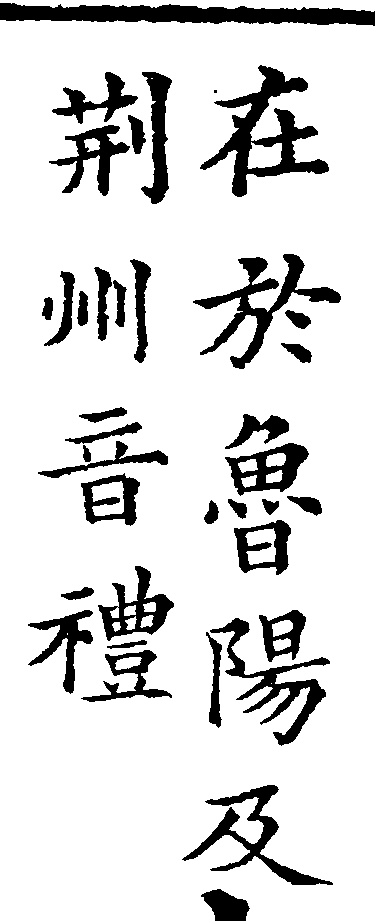 在於魯陽及
荆州音禮